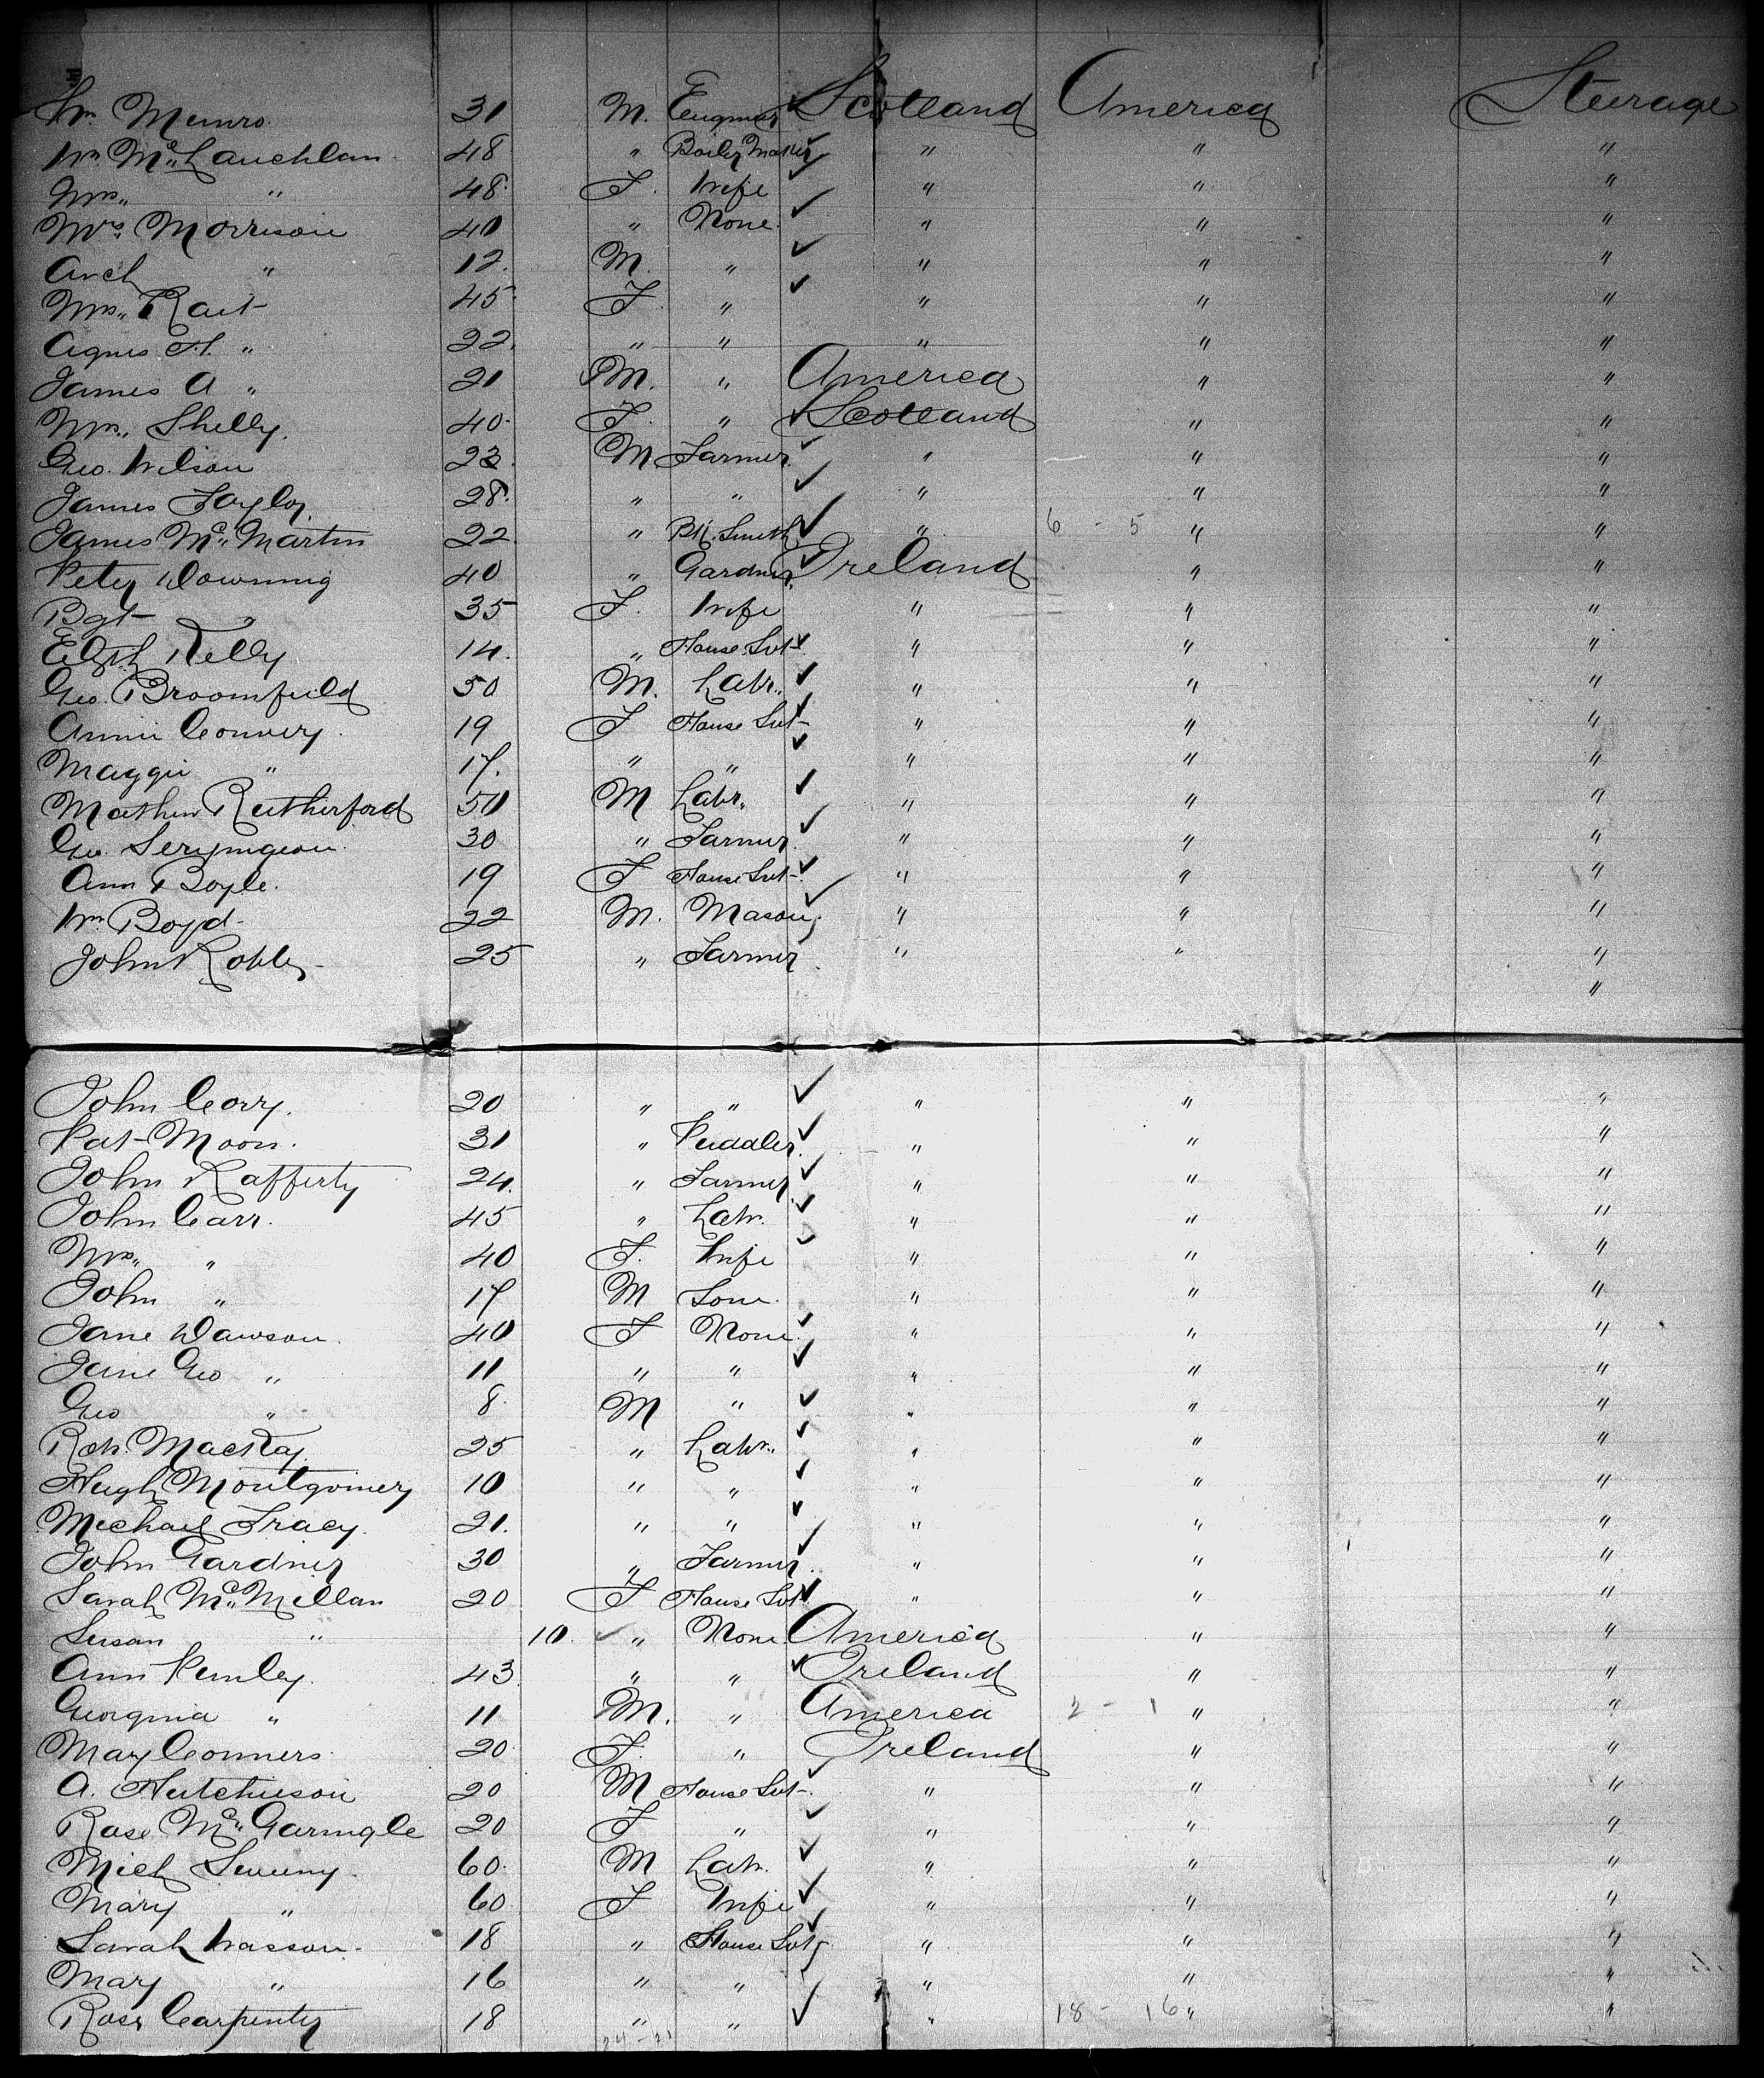 Wm Munro 31 M. Engineer Scotland America Steerage
Wm McLauchlan 48 " Boiler Maker " " "
Mrs " 48 F. Wife " " "
Mrs Morrison 40 " None " " "
Arch " 12 M. " " " "
Mrs Rait 45 F " " "
Agnes H. " 22 " " " " "
James A " 21 M. " America " "
Mrs Shelly 40 F. " Scotland " "
Geo. Wilson 23 M Farmer " " "
James Taylor 28 " " " " "
James McMartin 22 " Bk. Smith " 6 - 5 " "
Peter Downing 40 " Gardner Ireland " "
Bgt 35 F. Wife " " "
Elizth Kelly 14 " House Svt " " "
Geo. Broomfield 50 M. Labr. " " "
Annie Convery 19 F House Svt " " "
Maggie " 17 " " " " "
Mathew Rutherford 50 M Labr. " " "
Geo. Scrymgeour 30 " Farmer " " "
Ann Boyle 19 F House Svt " " "
Wm Boyd 22 M. Mason " " "
John Robb 25 " Farmer " " "
"
John Corry 20 " " " " "
Pat Moon 31 " Puddler " " "
John Rafferty 24 " Farmer " " "
John Carr 45 " Labr. " " "
Mrs " 40 F. Wife " " "
John " 17 M Son " " "
Jane Dawson 40 F None " " "
Jane Geo " 11 " " " " "
Geo " 8 M " " " "
Rob. MacKay 25 " Labr. " " "
Hugh Montgomery 10 " " " " "
Michael Tracy 21 " " " " "
John Gardner 30 " Farmer " " "
Sarah McMillan 20 F House Svt " " "
Susan " 10 " None America " "
Ann 43 " " Ireland " "
Georgina " 11 M. " America 2 - 1 " "
Mary Conners 20 F. " Ireland " "
A. Hutchison 20 M House Svt " " "
Rose McGarmgle 20 F " " " "
Mich Sweeny 60 M Labr. " " "
Mary " 60 F Wife " " "
Sarah Wasson 18 " House Svt " " "
Mary " 16 " " " " "
Rose Carpenter 18 " " " 18 - 16 " "
24 - 21